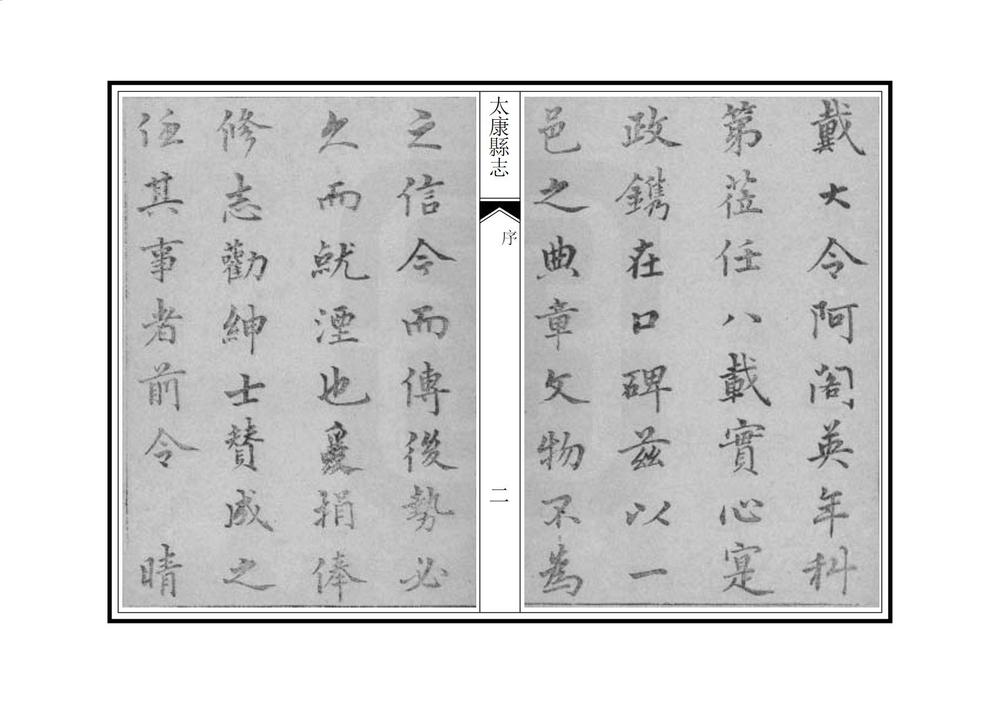 戴大令阿閣英年科
第蒞任八載實心寔
政鐫在口碑兹以一
邑之典章文物不為
太康縣志
序
二
之信今而傳後勢必
久而就湮也爰捐俸
修志勸紳士賛成之
任其事者前令 晴